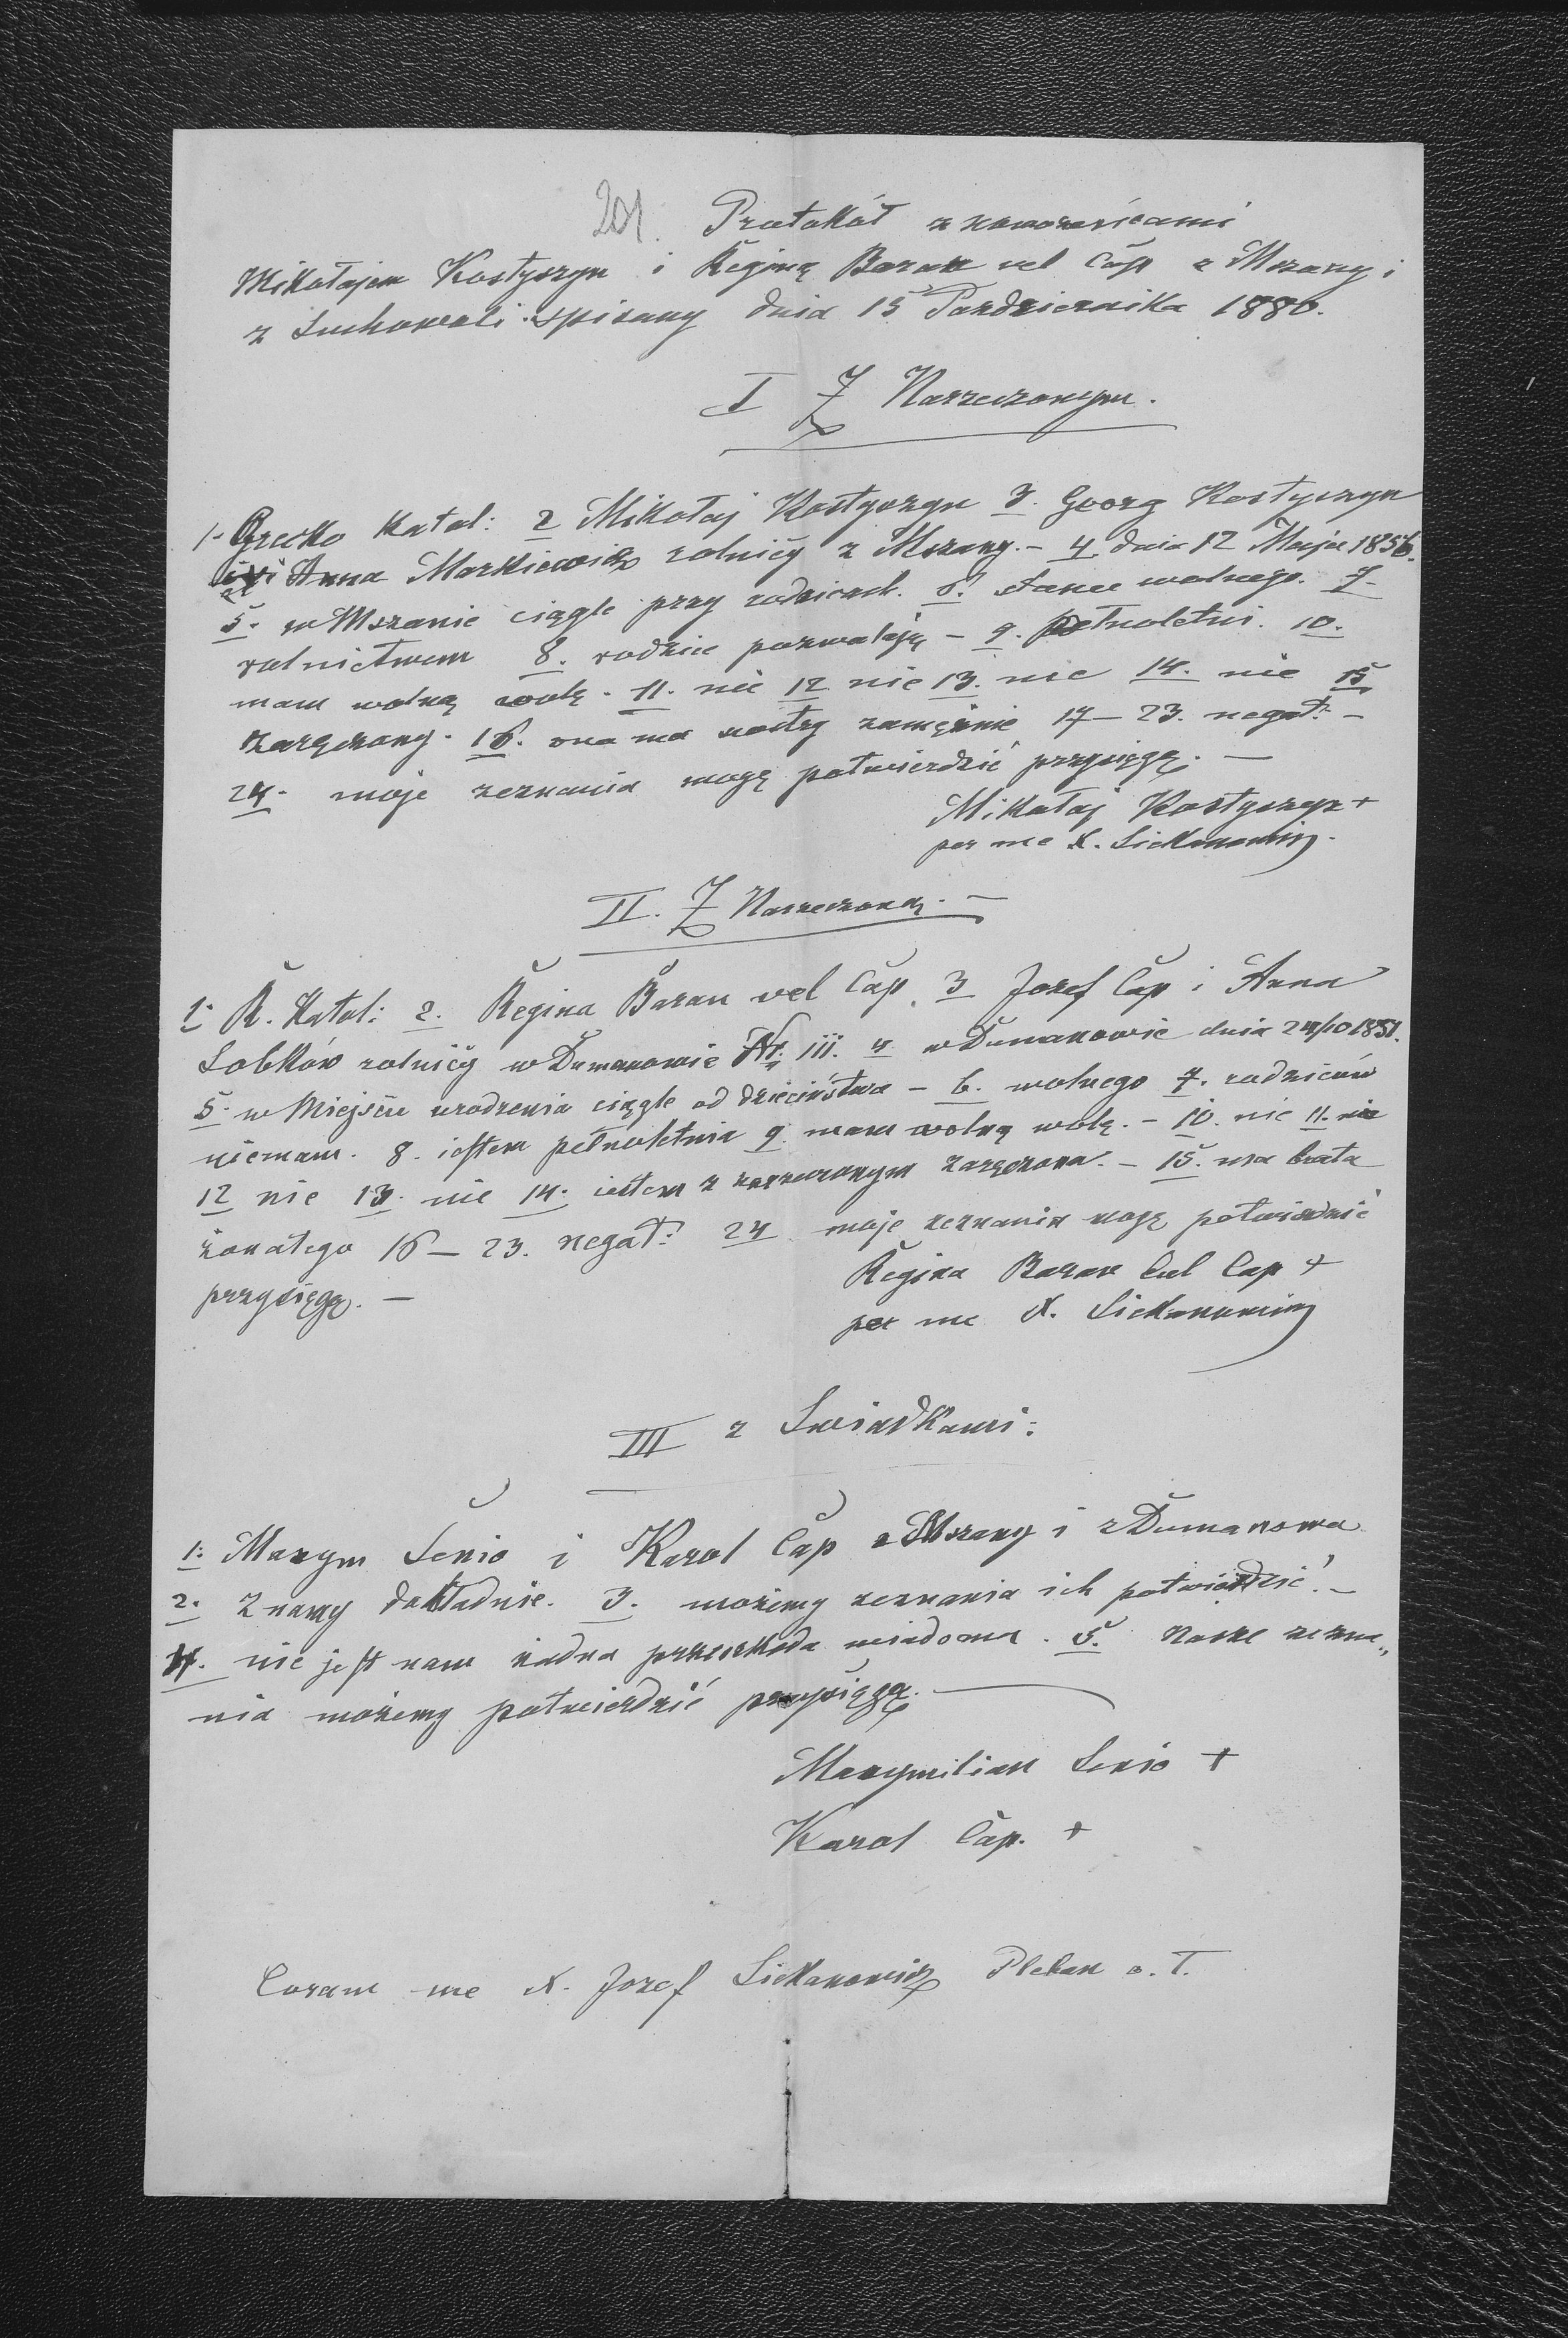 201. Protokół z nowożeńcami
Mikołajem Kostyszyn i Reginą Baran vel Cap z Mszany i
z Suchowoli spisany dnia 15 Pazdziernika 1880.
I Z Narzeczonym.
1. Grecko Katol: 2 Mikołaj Kostyszyn 3. Georg Kostyszyn
i Anna Markiewicz rolnicy z Mszany. - 4. dnia 12 Maja 1856.
5. w Mszanie ciągle przy rodzicach. 6. stanu wolnego. 7
rolnictwem 8. rodzice pozwalają - 9. pełnoletni. 10.
mam wolną wolę. 11. nie 12 nie 13. nie 14. nie 15
zaręczony. 16. ona ma siostry zamężnie 17-23. negat: -
24. moje zeznania mogę potwierdzić przysięgą. -
Mikołaj Kostyszyn +
per me X. Sickanowicz.
II. Z Narzeczoną. -
1. R. Katol: 2. Regina Baran vel Cap. 3 Jozef Cap i Anna
Sobków rolnicy w Dumanowie Nr. 111. 4 w Dumanowie dnia 24/10 1851.
5. w Miejscu urodzenia ciągle od dzieciństwa - 6. wolnego 7. rodziców
niemam. 8. jestem pełnoletnia 9. mam wolną wolę. - 10. nie 11. nie
12 nie 13. nie 14. jestem z narzeczonym zaręczona. - 15. ma brata
żonatego 16-23. negat: 24 moje zeznania mogę potwierdzić
przysięgą. -
Regina Baran vel Cap +
per me X. Sickanowicz
III z Swiadkami:
1. Maxym Senio i Karol Cap z Mszany i z Dumanowa
2. Znamy dokładnie. 3. możemy zeznania ich potwierdzić. -
4. nie jest nam żadna przeszkoda wiadoma. 5. Nasze zezna„
nia możemy potwierdzić przysięgą.
Maxymilian Senio +
Karol Cap. +
Coram me X. Jozef Sickanowicz Pleban o. T.